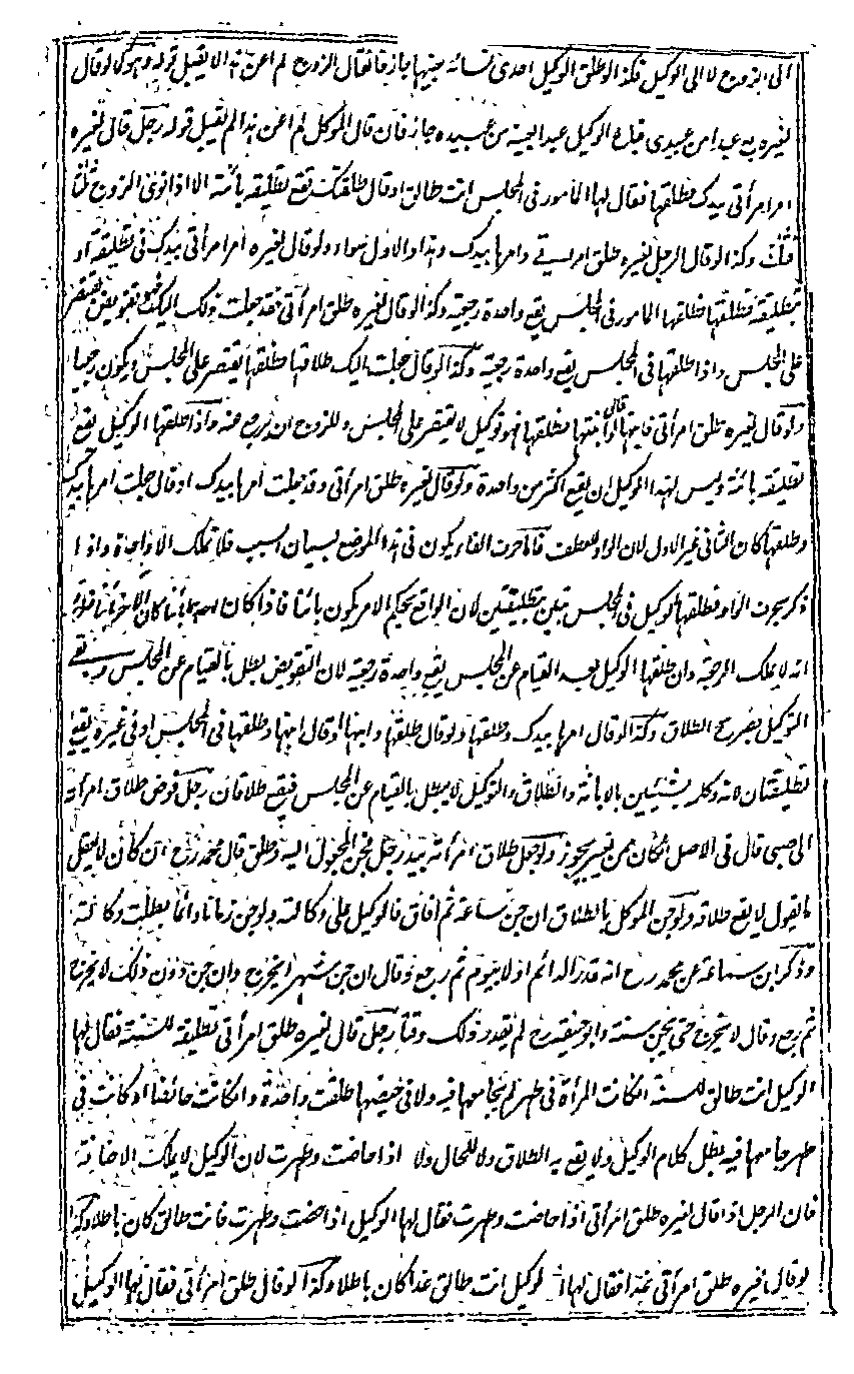 الى الزوج لا الى الوكيل فكذا لو طلق الوكيل احدى نسائه بعينها جاز فان قال الزوج لم اعن هذه لا يقبل قوله وهو كما لو قال
لغيره بع عبدا من عبيدى فباع الوكيل عبدا بعينه من عبيده جاز فان قال الموكل لم اعن هذا لم يقبل قوله رجل قال لغيره
امر امرأتى بيدك فطلقها فقال لها المأمور فى المجلس انت طالق او قال طلقتك تقع تطليقة بائنة الا اذا نوى الزوج ثلثا
فثلث وكذا لو قال الرجل لغيره طلق امرأتى وامرها بيدك وهذا والاول سواء ولو قال لغيره امر امرأتى بيدك فى تطليقة او
بتطليقة فطلقها فطلقها المأمور فى المجلس يقع واحدة رجعية وكذا لو قال لغيره طلق امرأتى فقد جعلت ذلك اليك فهو تفويض يقتصر
على المجلس واذا طلقها فى المجلس يقع واحدة رجعية وكذا لو قال جعلت اليك طلاقها فطلقها يقتصر على المجلس ويكون رجعيا
ولو قال لغيره طلق امرأتى فابنها او قال ابنتها فطلقها فهو توكيل لا يقتصر على المجلس وللزوج ان يرجع عنه واذا طلقها الوكيل يقع
تطليقة بائنة وليس لهذا الوكيل ان يوقع اكثر من واحدة ولو قال لغيره طلق امرأتى وقد جعلت امرها بيدك او قال جعلت امرها بيدك
وطلقها كان الثانى غير الاول لان الواو للعطف فاما حرف الفاء يكون فى هذا الموضع لبيان السبب فلا يملك الا واحدة واذا
ذكر بحرف الواو فطلقها الوكيل فى المجلس تبين بتطليقتين لان الواقع بحكم الامر يكون بائنا فاذا كان احدهما بائنا كان الآخر بائنا ضرورة
انه لا يملك الرجعة وان طلقها الوكيل بعد القيام عن المجلس يقع واحدة رجعية لان التفويض يبطل بالقيام عن المجلس ويبقى
التوكيل بصريح الطلاق وكذا لو قال امرها بيدك وطلقها ولو قال طلقها وابنها او قال ابنها وطلقها فى المجلس او فى غيره يقع
تطليقتان لانه وكله بشيئين بالابانة والطلاق والتوكيل لا يبطل بالقيام عن المجلس فيقع طلاقان رجل فوض طلاق امرأته
الى صبى قال فى الاصل ان كان ممن يعبر يجوز ولو جعل طلاق امرأته بيد رجل فجن المجعول اليه وطلق قال محمد رح ان كان لا يعقل
ما يقول لا يقع طلاقه ولو جن الموكل بالطلاق ان جن ساعة ثم افاق فالوكيل على وكالته ولو جن زمانا دائما بطلت وكالته
وذكر ابن سماعة عن محمد رح انه قدر الدائم اولا بيوم ثم رجع وقال ان جن شهرا يخرج وان جن دون ذلك لا يخرج
ثم رجع وقال لا يخرج حتى يجن سنة وابو حنيفة رح لم يقدر ذلك وقتا رجل قال لغيره طلق امرأتى تطليقة للسنة فقال لها
الوكيل انت طالق للسنة ان كانت المرأة فى طهر لم يجامعها فيه ولا فى حيضها طلقت واحدة وان كانت حائضا او كانت فى
طهر جامعها فيه بطل كلام الوكيل ولا يقع به الطلاق ولا للحال ولا اذا حاضت وطهرت لان الوكيل لا يملك الاضافة
فان الرجل اذا قال لغيره طلق امرأتى اذا حاضت وطهرت فقال لها الوكيل اذا حضت وطهرت فانت طالق كان باطلا وكذا
لو قال لغيره طلق امرأتى غدا فقال لها الوكيل انت طالق غدا كان باطلا وكذا لو قال طلق امرأتى فقال لها الوكيل